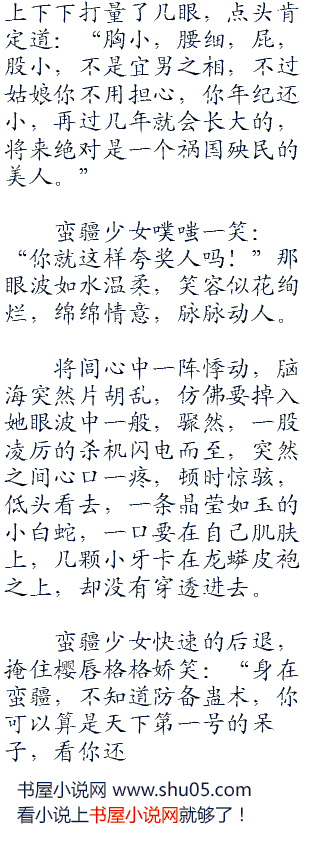 上下下打量了几眼，点头肯
定道：“胸小，腰细，屁，
股小，不是宜男之相，不过
姑娘你不用担心，你年纪还
小，再过几年就会长大的，
将来绝对是一个祸国殃民的
美人。”
蛮疆少女噗嗤一笑：
“你就这样夸奖人吗！”那
眼波如水温柔，笑容似花绚
烂，绵绵情意，脉脉动人。
将闾心中一阵悸动，脑
海突然片胡乱，仿佛要掉入
她眼波中一般，骤然，一股
凌厉的杀机闪电而至，突然
之间心口一疼，顿时惊骇，
低头看去，一条晶莹如玉的
小白蛇，一口要在自己肌肤
上，几颗小牙卡在龙蟒皮袍
之上，却没有穿透进去。
蛮疆少女快速的后退，
掩住樱唇格格娇笑：“身在
蛮疆，不知道防备蛊术，你
可以算是天下第一号的呆
子，看你还
书屋小说网 www.shu05.com
看小说上书屋小说网就够了！